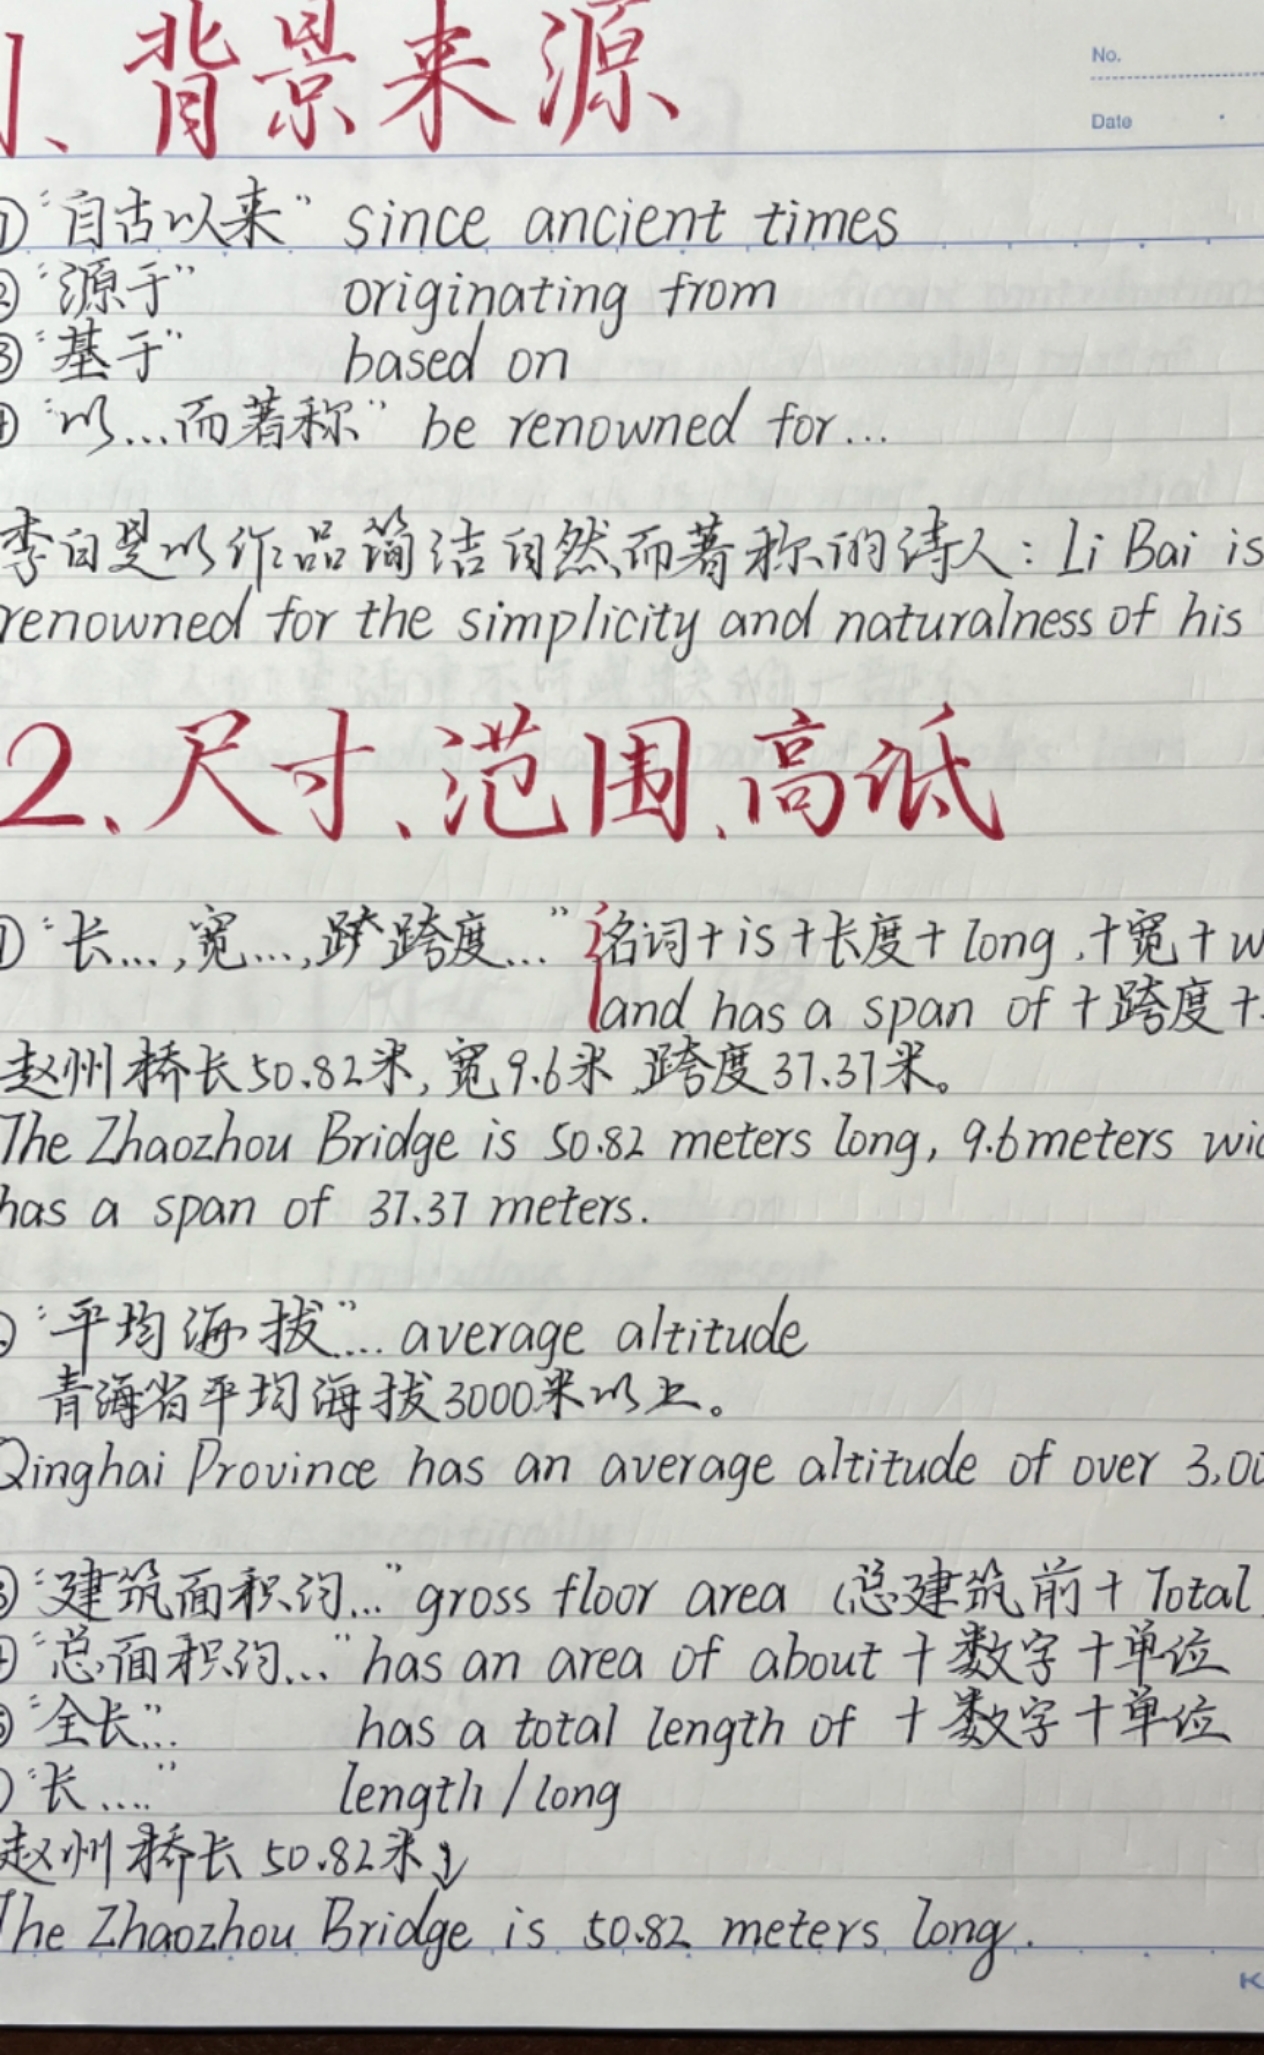 1、背景来源
No.
Date
①“自古以来” since ancient times
②“源于” originating from
③“基于” based on
④“以...而著称” be renowned for...
李白是以作品简洁自然而著称的诗人：Li Bai is
renowned for the simplicity and naturalness of his
2、尺寸、范围、高低
①“长...,宽...,跨跨度...” 名词+is+长度+long,+宽+w
and has a span of+跨度+
赵州桥长50.82米,宽9.6米,跨度37.37米。
The Zhaozhou Bridge is 50.82 meters long, 9.6meters wid
has a span of 37.37 meters.
“平均海拔”... average altitude
青海省平均海拔3000米以上。
Qinghai Province has an average altitude of over 3,00
③“建筑面积约...” gross floor area (总建筑前+Total
④“总面积约...” has an area of about+数字+单位
⑤“全长”... has a total length of +数字+单位
“长....” length/long
赵州桥长50.82米↓
The Zhaozhou Bridge is 50.82 meters long.